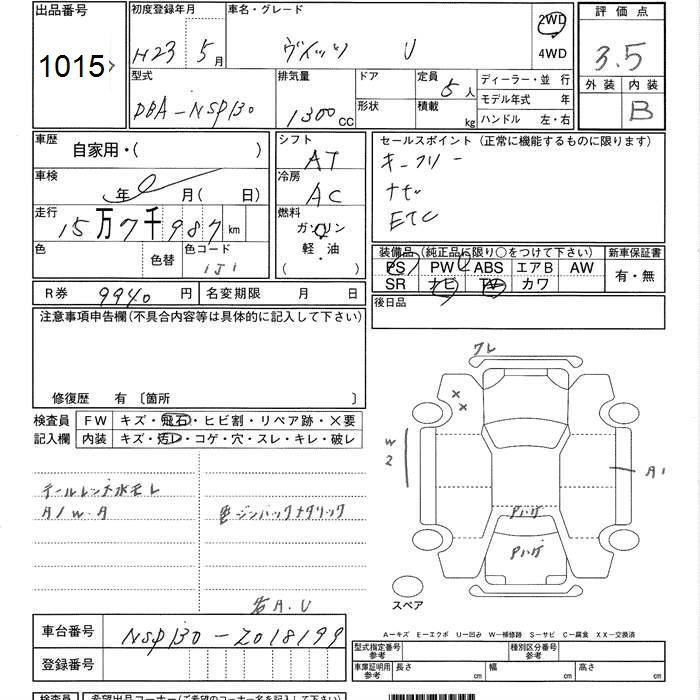 出品番号 初度登録年月 車名・グレード 2WD 評価点
1015 H23 5月 ヴィッツ U 4WD 3.5
型式 排気量 ドア 定員 5人 ディーラー・並行 外装 内装
DBA-NSP130 1300cc 形状 積載 kg モデル年式 年 B
ハンドル 左・右
車歴 シフト セールスポイント(正常に機能するものに限ります)
自家用・( ) AT キーフリー
車検 年 月( 日) 冷房 AC ナビ
走行 燃料 ETC
15万7千987km ガソリン
色 色替 色コード 軽・油
1J1 ( )
装備品(純正品に限り○をつけて下さい) 新車保証書
PS PW ABS エアB AW 有・無
SR ナビ TV カワ
R券 9940円 名変期限 月 日 後日品
注意事項申告欄(不具合内容等は具体的に記入して下さい)
修復歴 有 〔箇所 〕
検査員 FW キズ・飛石・ヒビ割・リペア跡・×要
記入欄 内装 キズ・汚レ・コゲ・穴・スレ・キレ・破レ
××
W2
A1
Pハゲ
Pハゲ
テールレンズ水モレ
A/W・A
スペア
A.U
車台番号 NSP130-2018199
A―キズ E―エクボ U―凹み W―補修跡 S―サビ C―腐食 XX―交換済
登録番号
型式指定番号 参考 種別区分番号 参考
車庫証明用 参考 長さ cm 幅 cm 高さ cm
検査員 希望出品コーナー(ご希望のコーナー名を記入して下さい)